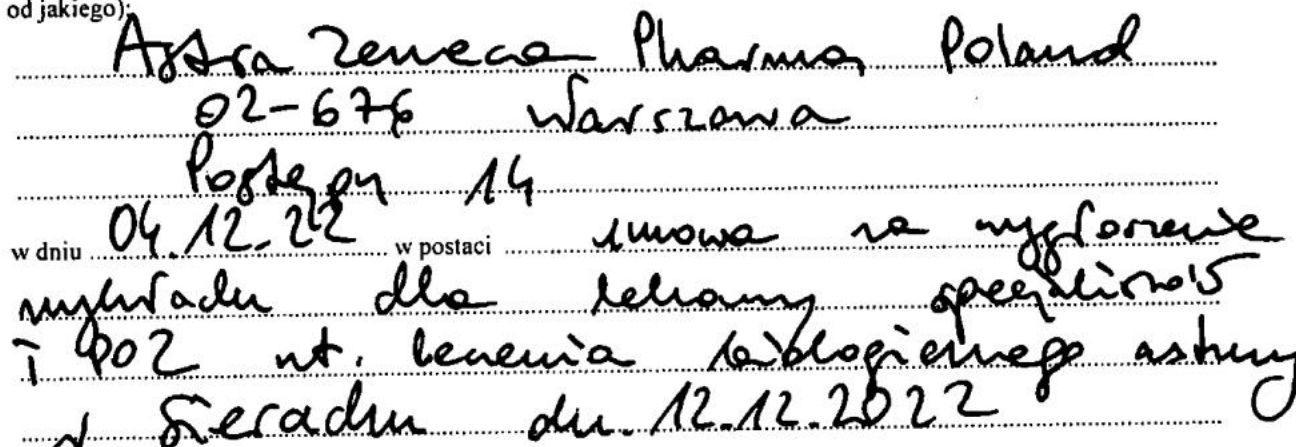 od jakiego):
Astra Zeneca Pharma Poland
02-676 Warszawa
Postępu 14
w dniu 04.12.22 w postaci umowa na wygłoszenie
wykładu dla lekarzy specjalistów
i POZ nt. leczenia biologicznego astmy
w Sieradzu dn. 12.12.2022